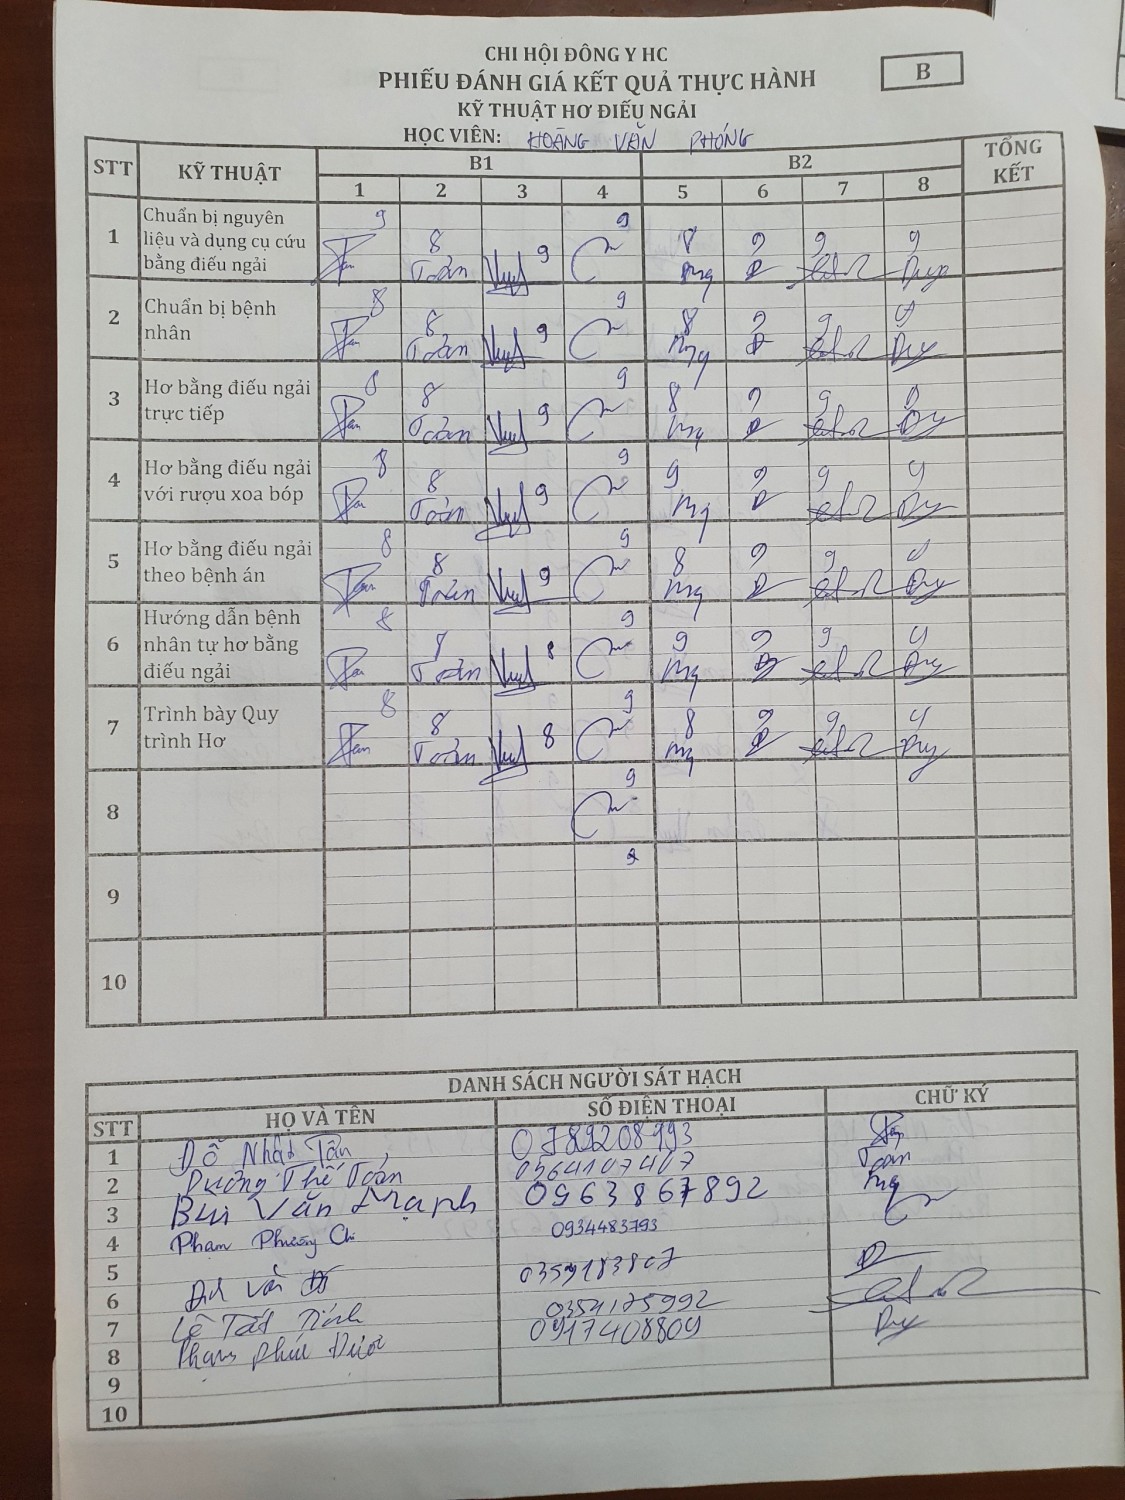 CHI HỘI ĐÔNG Y HC
PHIẾU ĐÁNH GIÁ KẾT QUẢ THỰC HÀNH
B
KỸ THUẬT HƠ ĐIẾU NGẢI
HỌC VIÊN: HOÀNG VĂN PHÓNG
STT KỸ THUẬT B1 B2 TỔNG KẾT
1 2 3 4 5 6 7 8
1 Chuẩn bị nguyên liệu và dụng cụ cứu bằng điếu ngải 9 8 9 9 8 9 9 9
Toản Mg Duy
2 Chuẩn bị bệnh nhân 8 8 9 9 8 9 9 9
Toản Mg Duy
3 Hơ bằng điếu ngải trực tiếp 8 8 9 9 8 9 9 9
Toản Mg Duy
4 Hơ bằng điếu ngải với rượu xoa bóp 8 8 9 9 9 9 9 9
Toản Mg Duy
5 Hơ bằng điếu ngải theo bệnh án 8 8 9 9 8 9 9 9
Toản Mg Duy
6 Hướng dẫn bệnh nhân tự hơ bằng điếu ngải 8 8 8 9 9 9 9 9
Toản Mg Duy
7 Trình bày Quy trình Hơ 8 8 8 9 8 9 9 9
Toản Mg Duy
8 9
9
10
DANH SÁCH NGƯỜI SÁT HẠCH
STT HỌ VÀ TÊN SỐ ĐIỆN THOẠI CHỮ KÝ
1 Đỗ Nhật Tân 0789208993
2 Dương Thế Toản 0364107407 Toản
3 Bùi Văn Mạnh 0963867892 Mg
4 Phạm Phương Chi 0934483793
5 Văn 0359183807
6 Lê Tất 0354175992
7 Phạm Phúc 0917408809 Duy
8
9
10